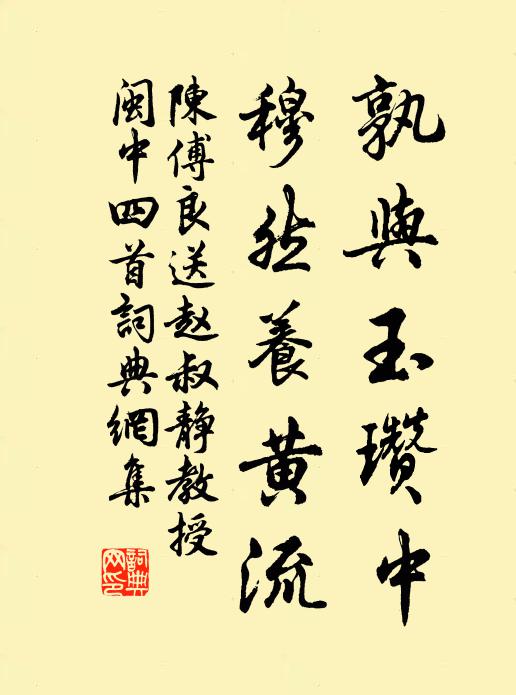 孰與玉瓚中
穆然養黄流
陳傅良送赵叔静教授
閩中四首詞典網集
詞典网印